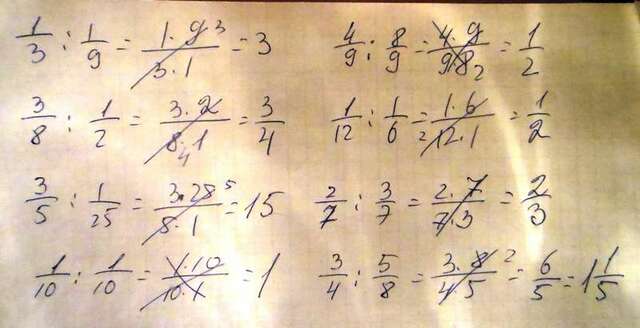 1/3 : 1/9 = 1·9/3·1 3 = 3
4/9 : 8/9 = 4·9/9·8 2 = 1/2
3/8 : 1/2 = 3·2/8·1 4 = 3/4
1/12 : 1/6 = 1·6/12·1 2 = 1/2
3/5 : 1/25 = 3·25/5·1 5 = 15
2/7 : 3/7 = 2·7/7·3 = 2/3
1/10 : 1/10 = 1·10/10·1 = 1
3/4 : 5/8 = 3·8/4·5 2 = 6/5 = 1 1/5